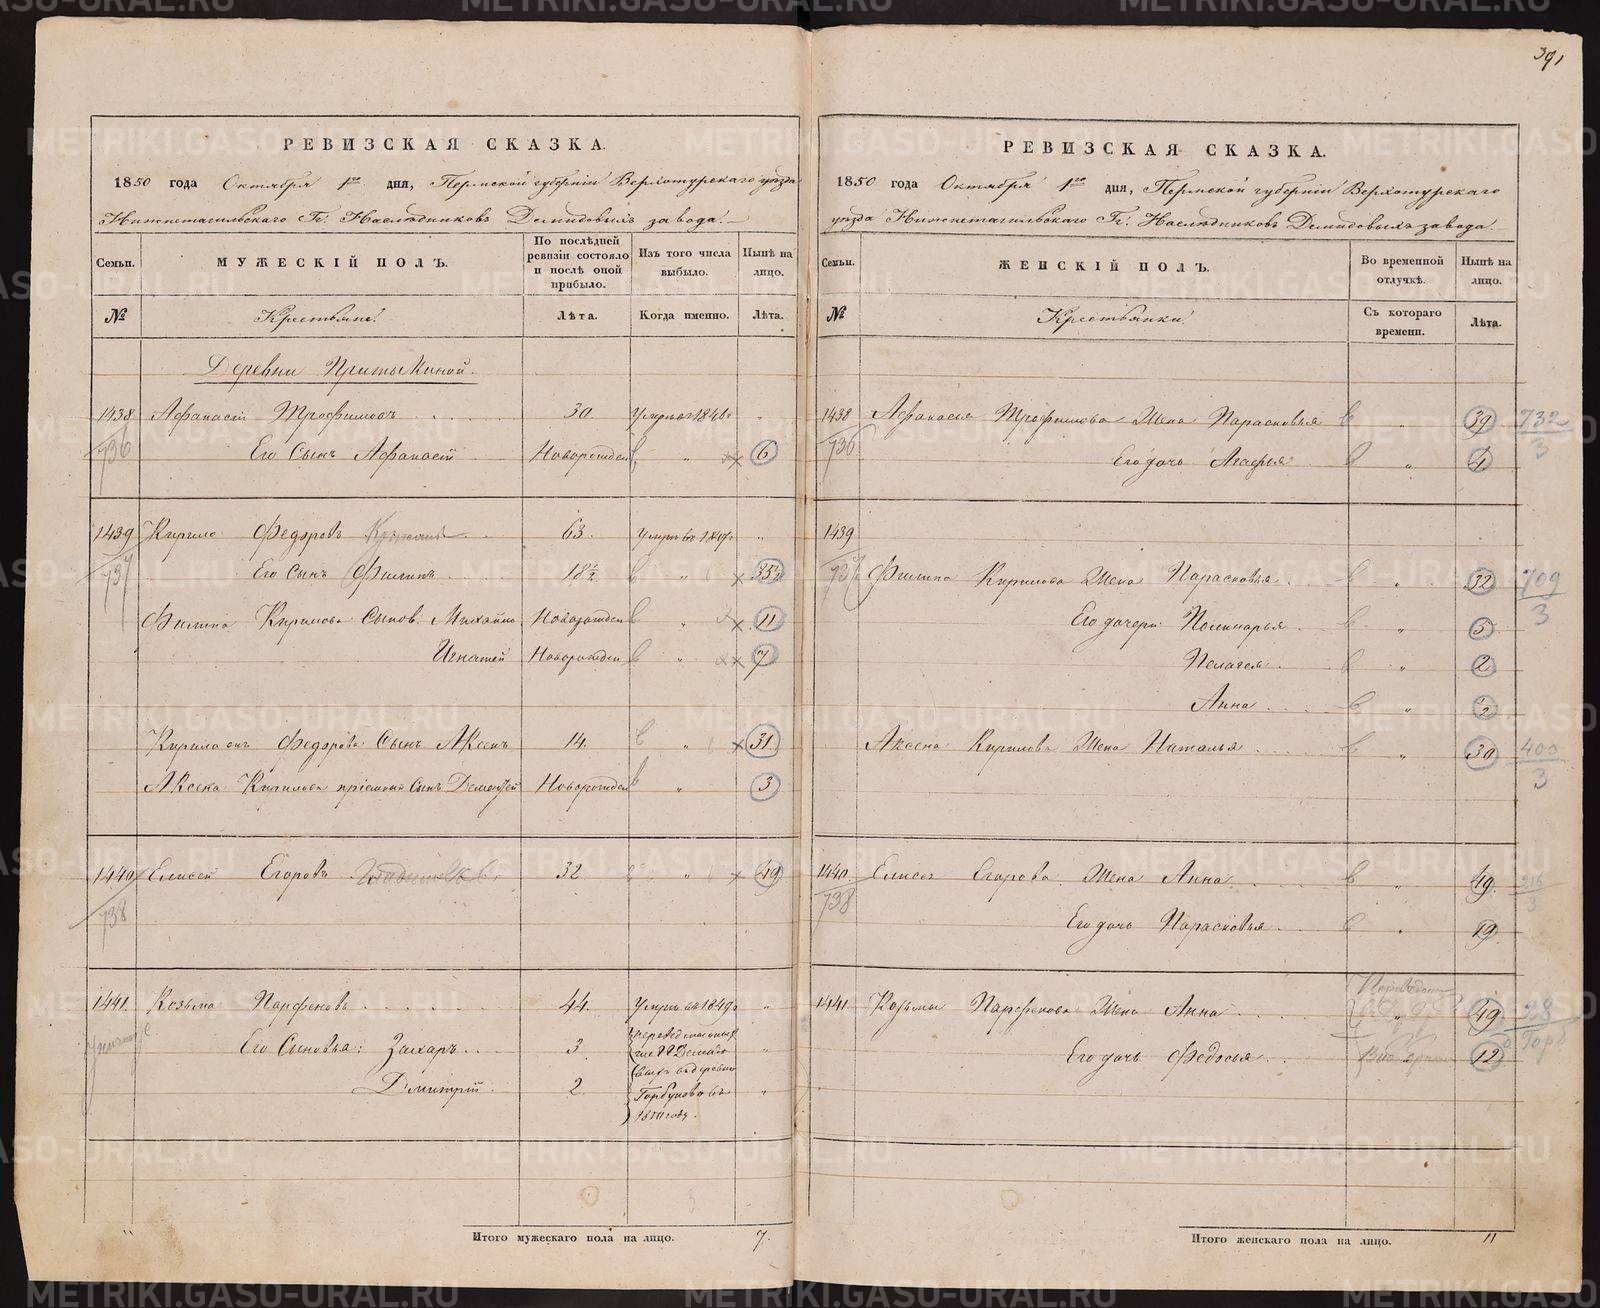 391
РЕВИЗСКАЯ СКАЗКА.
1850 года Октября 1го дня, Пермской губернии Верхотурскаго уезда
Нижнетагильскаго Гг. Наследниковъ Демидовыхъ завода.
Семьи.
МУЖЕСКІЙ ПОЛЪ.
По послѣдней ревизіи состояло и послѣ оной прибыло.
Изъ того числа выбыло.
Нынѣ на лицо.
№
Крестьяне.
Лѣта.
Когда именно.
Лѣта.
Деревни Притыкиной.
1438 Афанасій Трофимовъ 30 Умеръ въ 1846
736 Его Сынъ Афанасій Новорожден " 6
1439 Кирило Федоровъ 63 Умеръ въ "
737 Его Сынъ Филипъ 18½ " 35½
Филипа Кирилова Сынов. Михайло Новорожден " 11
Игнатей Новорожден " 7
Кирила Федорова Сынъ Аксенъ 14. " 31
Аксена Кирилова пріемной Сынъ Дементей Новорожден " 3
1440 Елисей Егоровъ 32 " 49
738
1441. Козьма Парфеновъ 44. Умеръ въ 1849 "
Его Сыновья: Захаръ 3 "
Дмитрій. 2 Горбуново въ "
Итого мужескаго пола на лицо. 7.
РЕВИЗСКАЯ СКАЗКА.
1850 года Октября 1го дня, Пермской губерніи Верхотурскаго
уезда Нижнетагильскаго Гг. Наследниковъ Демидовыхъ завода.
Семьи.
ЖЕНСКІЙ ПОЛЪ.
Во временной отлучкѣ.
Нынѣ на лицо.
№
Крестьянки.
Съ котораго времени.
Лѣта.
1438 Афанасья Трофимова Жена Парасковья " 39 732
736 Его дочь Агафья " 4 3
1439
737 Филипа Кирилова Жена Парасковья " 32 709
Его дочери: Полинарья " 5 3
Пелагея " 2
Анна " ½
Аксена Кирилова Жена Наталья " 30 400
3
1440 Елисея Егорова Жена Анна " 49. 216
738 Его дочь Парасковья " 19 3
1441. Козьмы Парфенова Жена Анна " 49 98
Его дочь Федосья 12 Горб
Итого женскаго пола на лицо. 11
METRIKI.GASO-URAL.RU